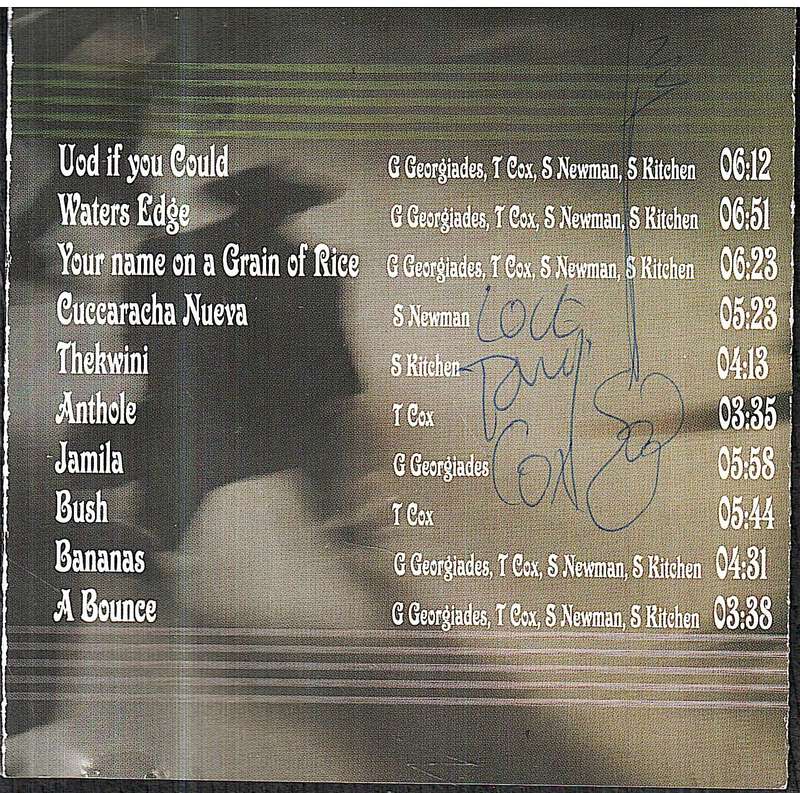 Uod if you Could G Georgiades, T Cox, S Newman, S Kitchen 06:12
Waters Edge G Georgiades, T Cox, S Newman, S Kitchen 06:51
Your name on a Grain of Rice G Georgiades, T Cox, S Newman, S Kitchen 06:23
Cuccaracha Nueva S Newman 05:23
Thekwini S Kitchen 04:13
Anthole T Cox 03:35
Jamila G Georgiades 05:58
Bush T Cox 05:44
Bananas G Georgiades, T Cox, S Newman, S Kitchen 04:31
A Bounce G Georgiades, T Cox, S Newman, S Kitchen 03:38
Love,
Tony
Cox